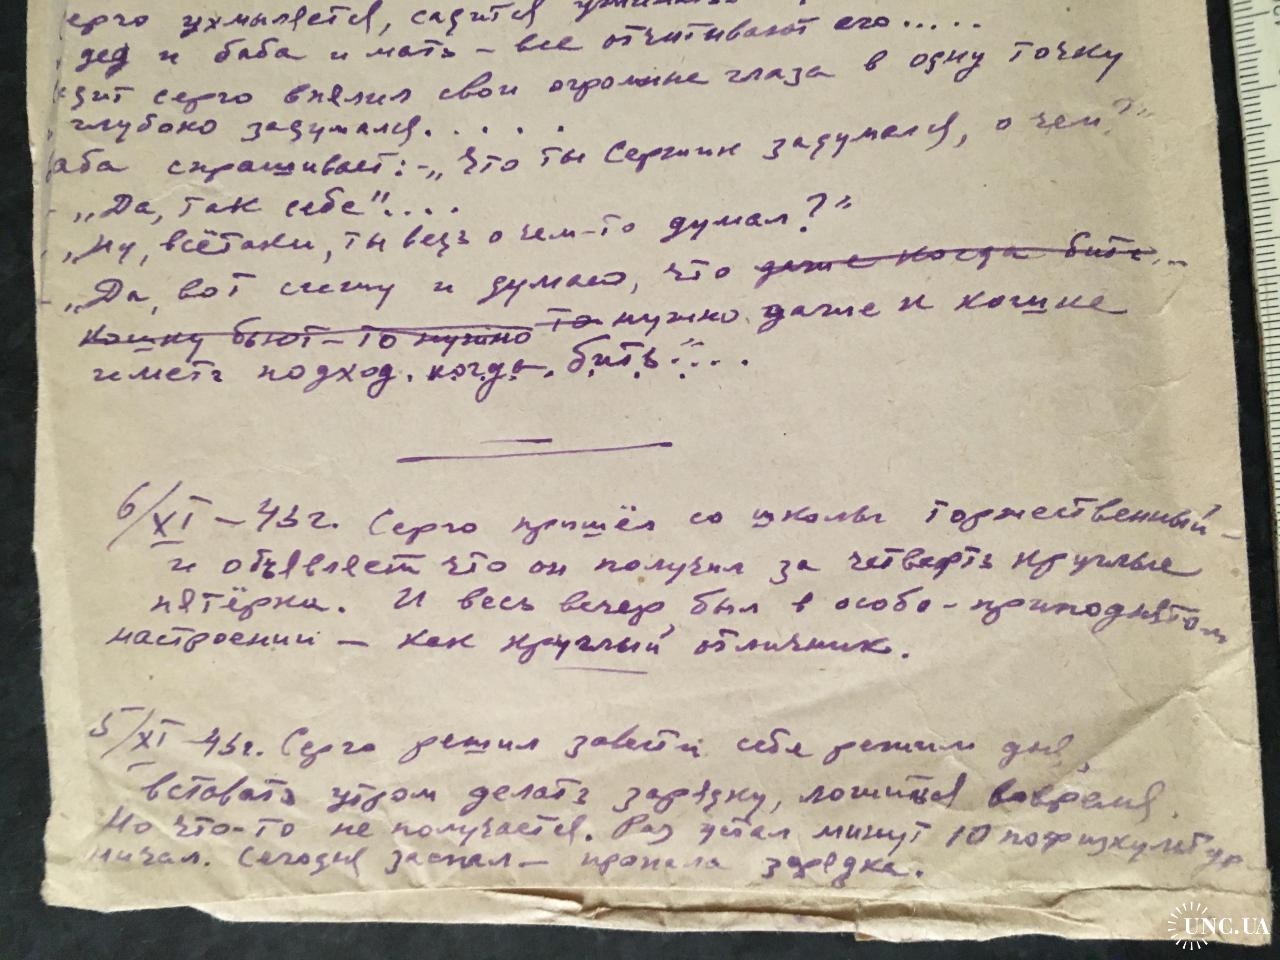 ерго ухмыляется, садится
дед и баба и мать – все отчитывают его.....
сидит серго впялил свои огромные глаза в одну точку
глубоко задумался.....
баба спрашивает: – „Что ты Сергий задумался, о чем?"
– „Да, так себе"....
„Ну, всётаки, ты ведь о чем-то думал?"
– „Да, вот сижу и думаю, что даже когда бить..
кошку бьют – то нужно то нужно даже и кошке
иметь подход. когда. бить"....
6/XI – 43 г. Серго пришёл со школы торжественный –
и объявляет что он получил за четверть круглые
пятёрки. И весь вечер был в особо-приподнятом
настроении – как круглый отличник.
5/XI – 43 г. Серго решил завести себе режим дня,
вставать утром делать зарядку, ложиться вовремя.
Но что-то не получается. Раз встал минут 10 пофизкультур
ничал. Сегодня заспал – пропала зарядка.
UNC.UA